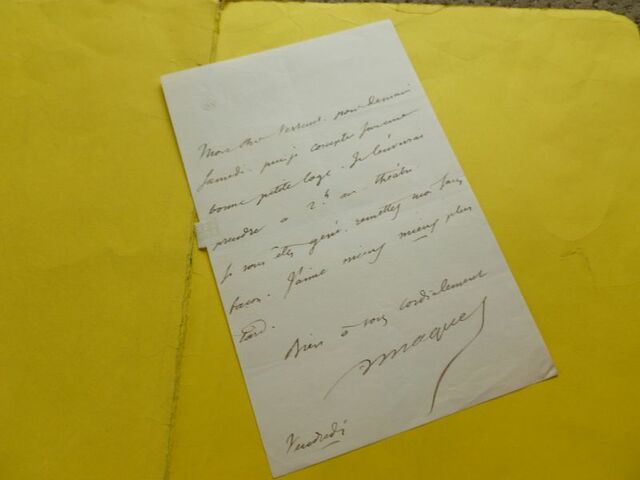 Mon cher Verteuil. pour demain
Samedi. puis-je compter sur une
bonne petite loge. Je l'enverrai
prendre à 2h au théâtre
Si vous êtes gêné. remettez moi sans
façon. J'aime mieux mieux plus
tard.
Bien à vous cordialement
Maquet
Vendredi